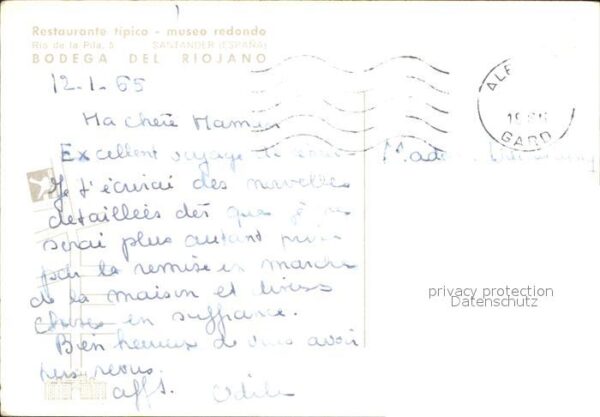 Restaurante típico - museo redondo
Río de la Pila, 5 SANTANDER (ESPAÑA)
BODEGA DEL RIOJANO
12.1.65
Ma chère Maman
Excellent voyage de
Je t'écrirai des nouvelles
détaillées dès que je ne
serai plus autant prise
par la remise en marche
de la maison et diverses
choses en suffrance.
Bien heureux de vous avoir
tous revus.
afft. Odile
GARD
Madame
privacy protection
Datenschutz